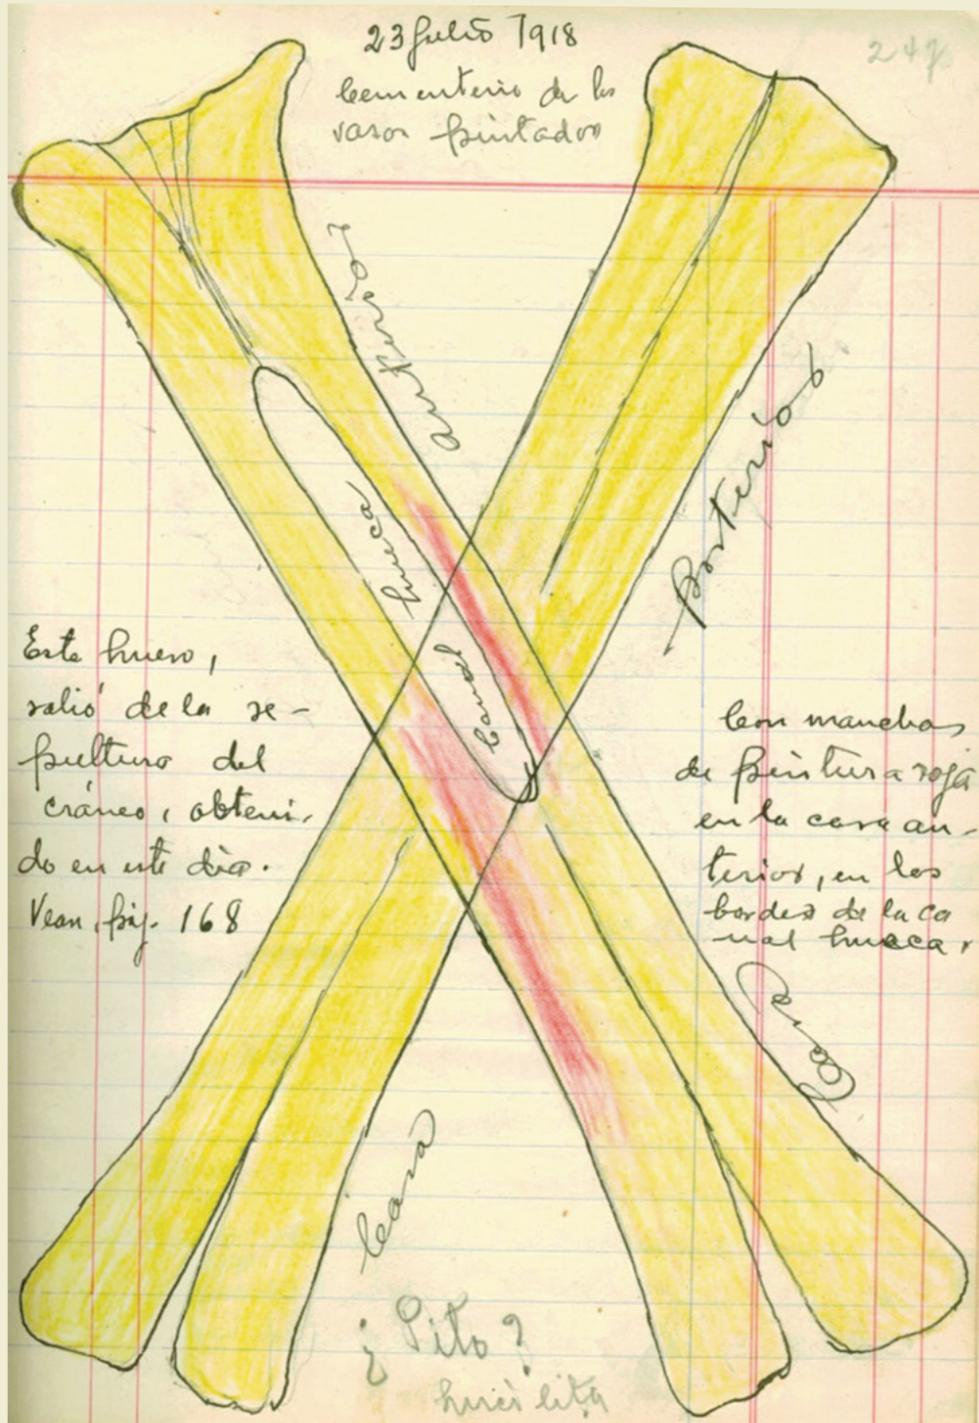 23 julio 1918
247
Cementerio de los
vasos pintados
anterior
posterior
hueca
Canal
Este hueso,
salió de la se-
pultura del
cráneo, obteni-
do en este día.
Vean pág. 168
Con manchas
de pintura roja
en la cara an-
terior, en los
bordes de la ca
nal hueca.
Cara
Cara
¿Pito?